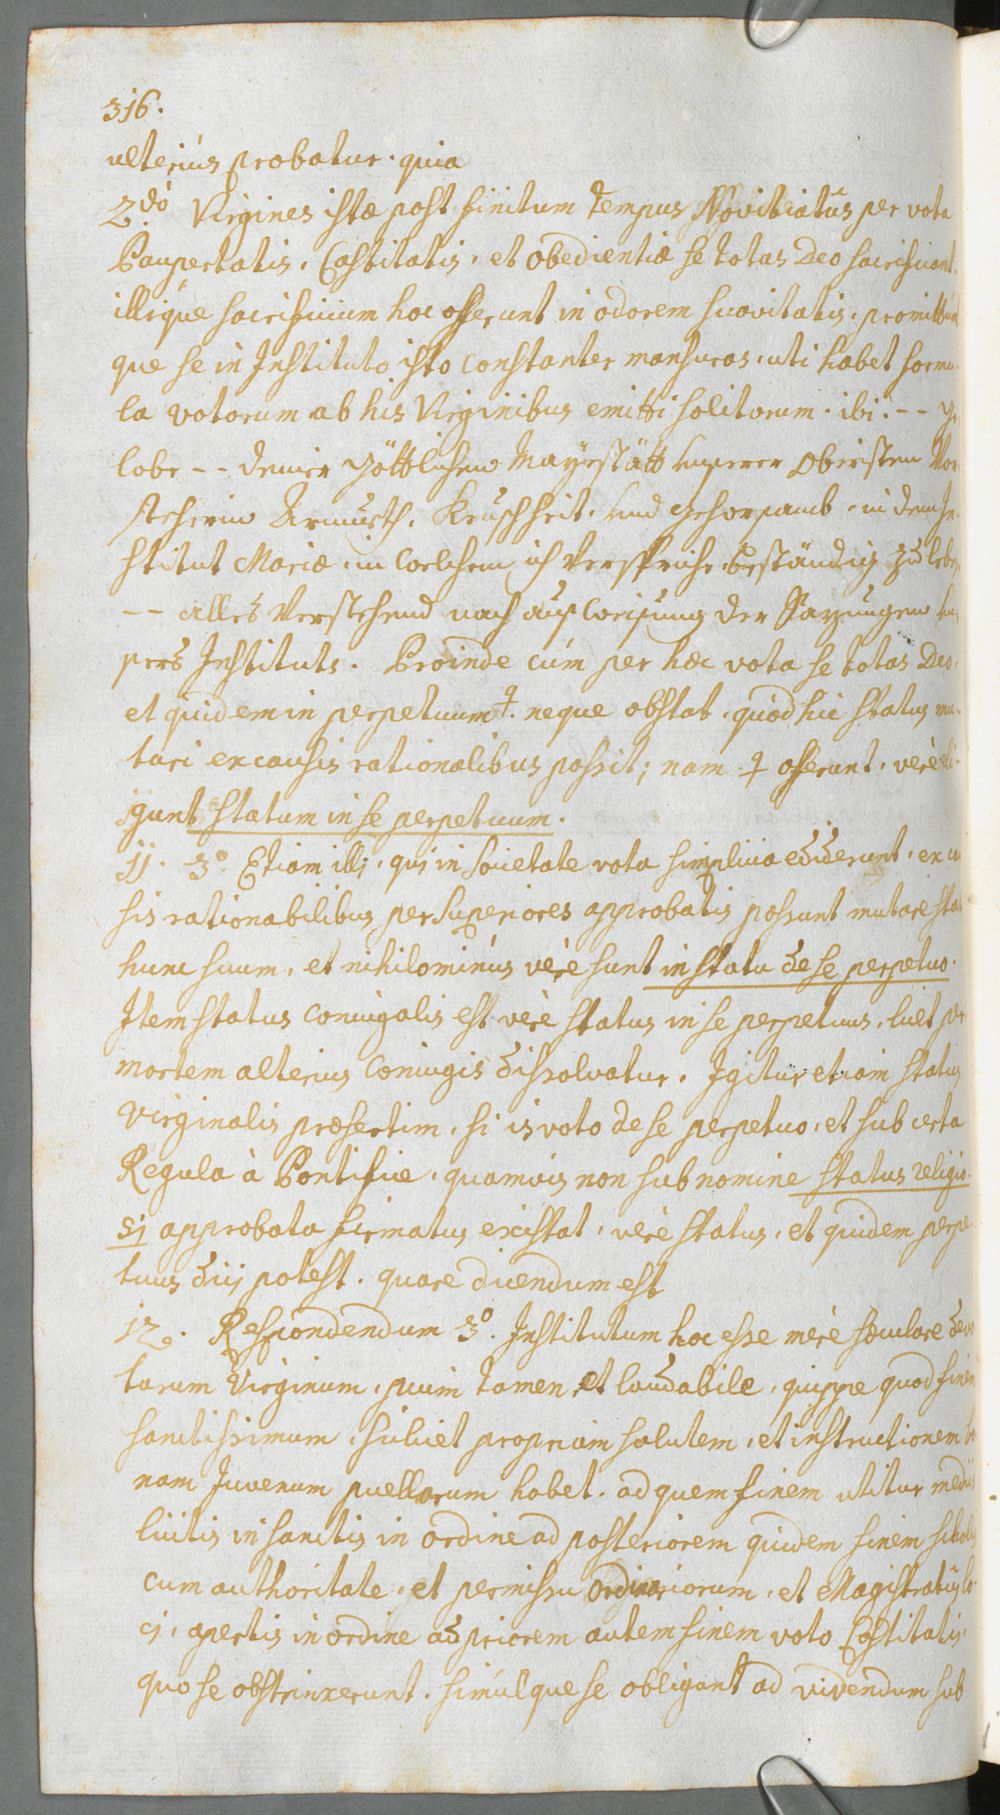 316.
ulteriús probatur. quia
2.dò Virgines istæ post finitum tempus Novitiatûs per vota
Paupertatis, Castitatis, et obedientiæ se totas Deo sacrificant.
illique sacrificium hoc offerunt in odorem suavitatis, promittunt
que se in Instituto isto constanter mansuras, uti habet formu-
la votorum ab his Virginibus emitti solitorum. ibi. -- Ge
lobe -- deiner Göttlichen Mayestätt unserer Obristen Vor
steherin Armueth, Keüschheit, und Gehorsamb, in dem In-
stitut Mariæ, in welchem ich verspriche beständig zu leben
-- alles verstehend nach aufweisung der Sazungen un-
sers Instituts. Proinde cúm per hæc vota se totas Deo,
et quidem in perpetuum ♀. neque obstat, quód hic status mu-
tari ex causis rationalibus possit; nam ♀ offerunt, verè eli-
gunt statum in se perpetuum.
11. 3.º Etiam illi, qui in Societate vota simplicia ediderunt, ex cau
sis rationabilibus per Superiores approbatis possunt mutare stat
hunc suum, et nihilominús verè sunt in statu de se perpetuo.
Item status coniugalis est verè status in se perpetuus, licet per
mortem alterius coniugis dissolvatur. Igitur etiam status
virginalis præsertim, si is voto de se perpetuo, et sub certa
Regula à Pontifice, quamvis non sub nomine status religio-
si approbata firmatus existat, verè status, et quidem perpe
tuus dici potest. quare dicendum est
12. Respondendum 3.º Institutum hoc esse merè sæculare devo
tarum Virginum, pium tamen, et laudabile, quippe quod finem
sanctissimum, scilicet propriam salutem, et instructionem bo
nam Juvenum puellarum habet. ad quem finem utitur mediis
licitis in sanctis in ordine ad posteriorem quidem finem scholis
cum authoritate, et permissu ordinariorum, et Magistratûs lo-
ci, apertis in ordine ad priorem autem finem voto Castitatis,
quo se obstrinxerunt. simúlque se obligant ad vivendum sub